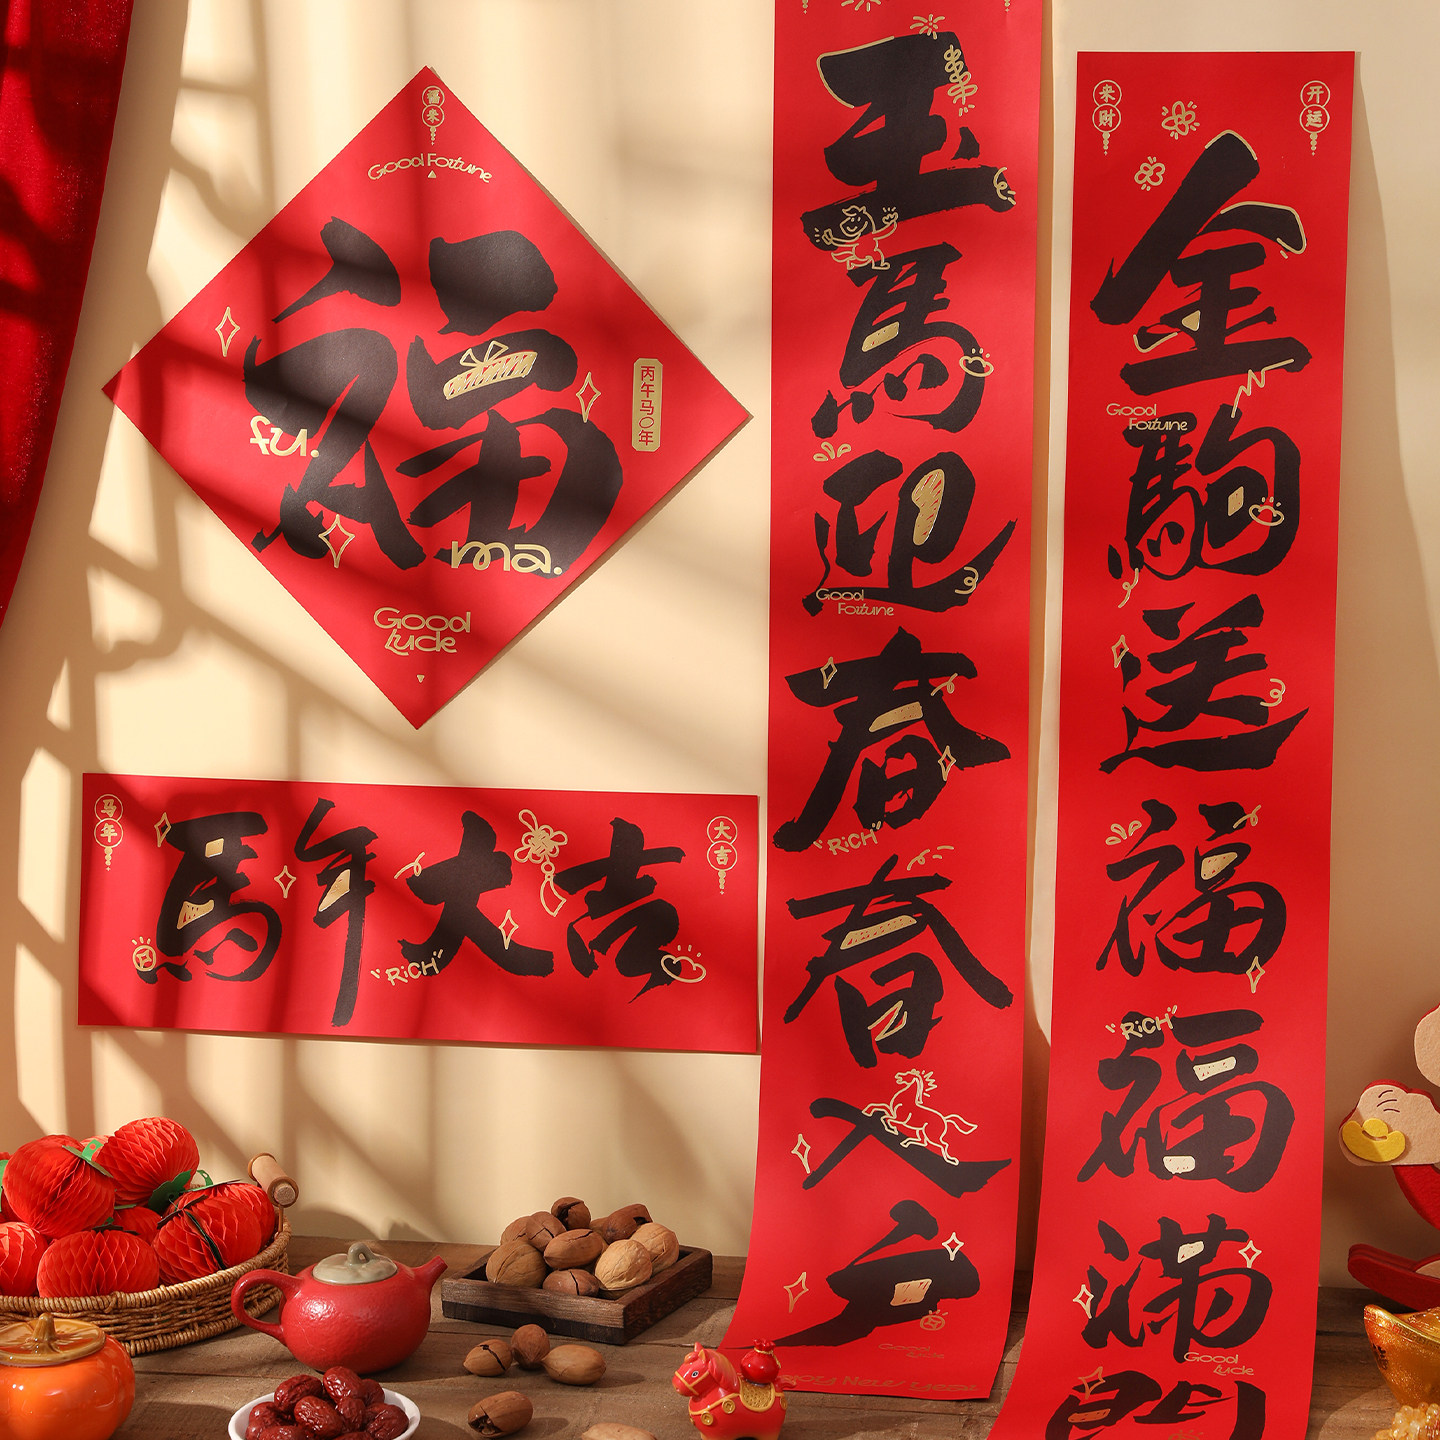 福来
Good Fortune
福
fu.
ma.
丙午马〇年
Good
Luck
马年
大吉
馬年大吉
"RiCH"
玉馬迎春春入户
Good
Fortune
"RiCH"
Good
Happy New Year
来财
开运
金駒送福福满門
Good
Fortune
"RiCH"
Good
Luck